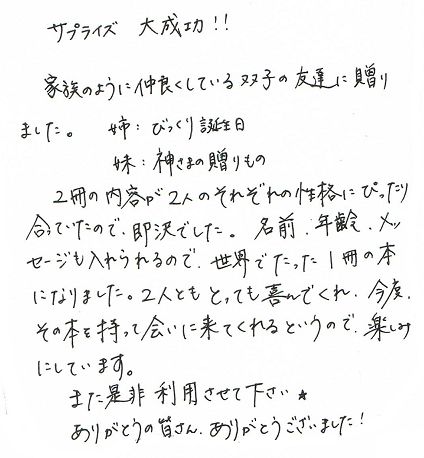 サプライズ 大成功!!
家族のように仲良くしている双子の友達に贈り
ました。 姉:びっくり誕生日
妹:神さまの贈りもの
2冊の内容が2人のそれぞれの性格にぴったり
合っていたので、即決でした。名前、年齢、メッ
セージも入れられるので、世界でたった1冊の本
になりました。2人とも とっても喜んでくれ、今度、
その本を持って会いに来てくれるというので、楽しみ
にしています。
また是非 利用させて下さい★
ありがとうの皆さん、ありがとうございました!